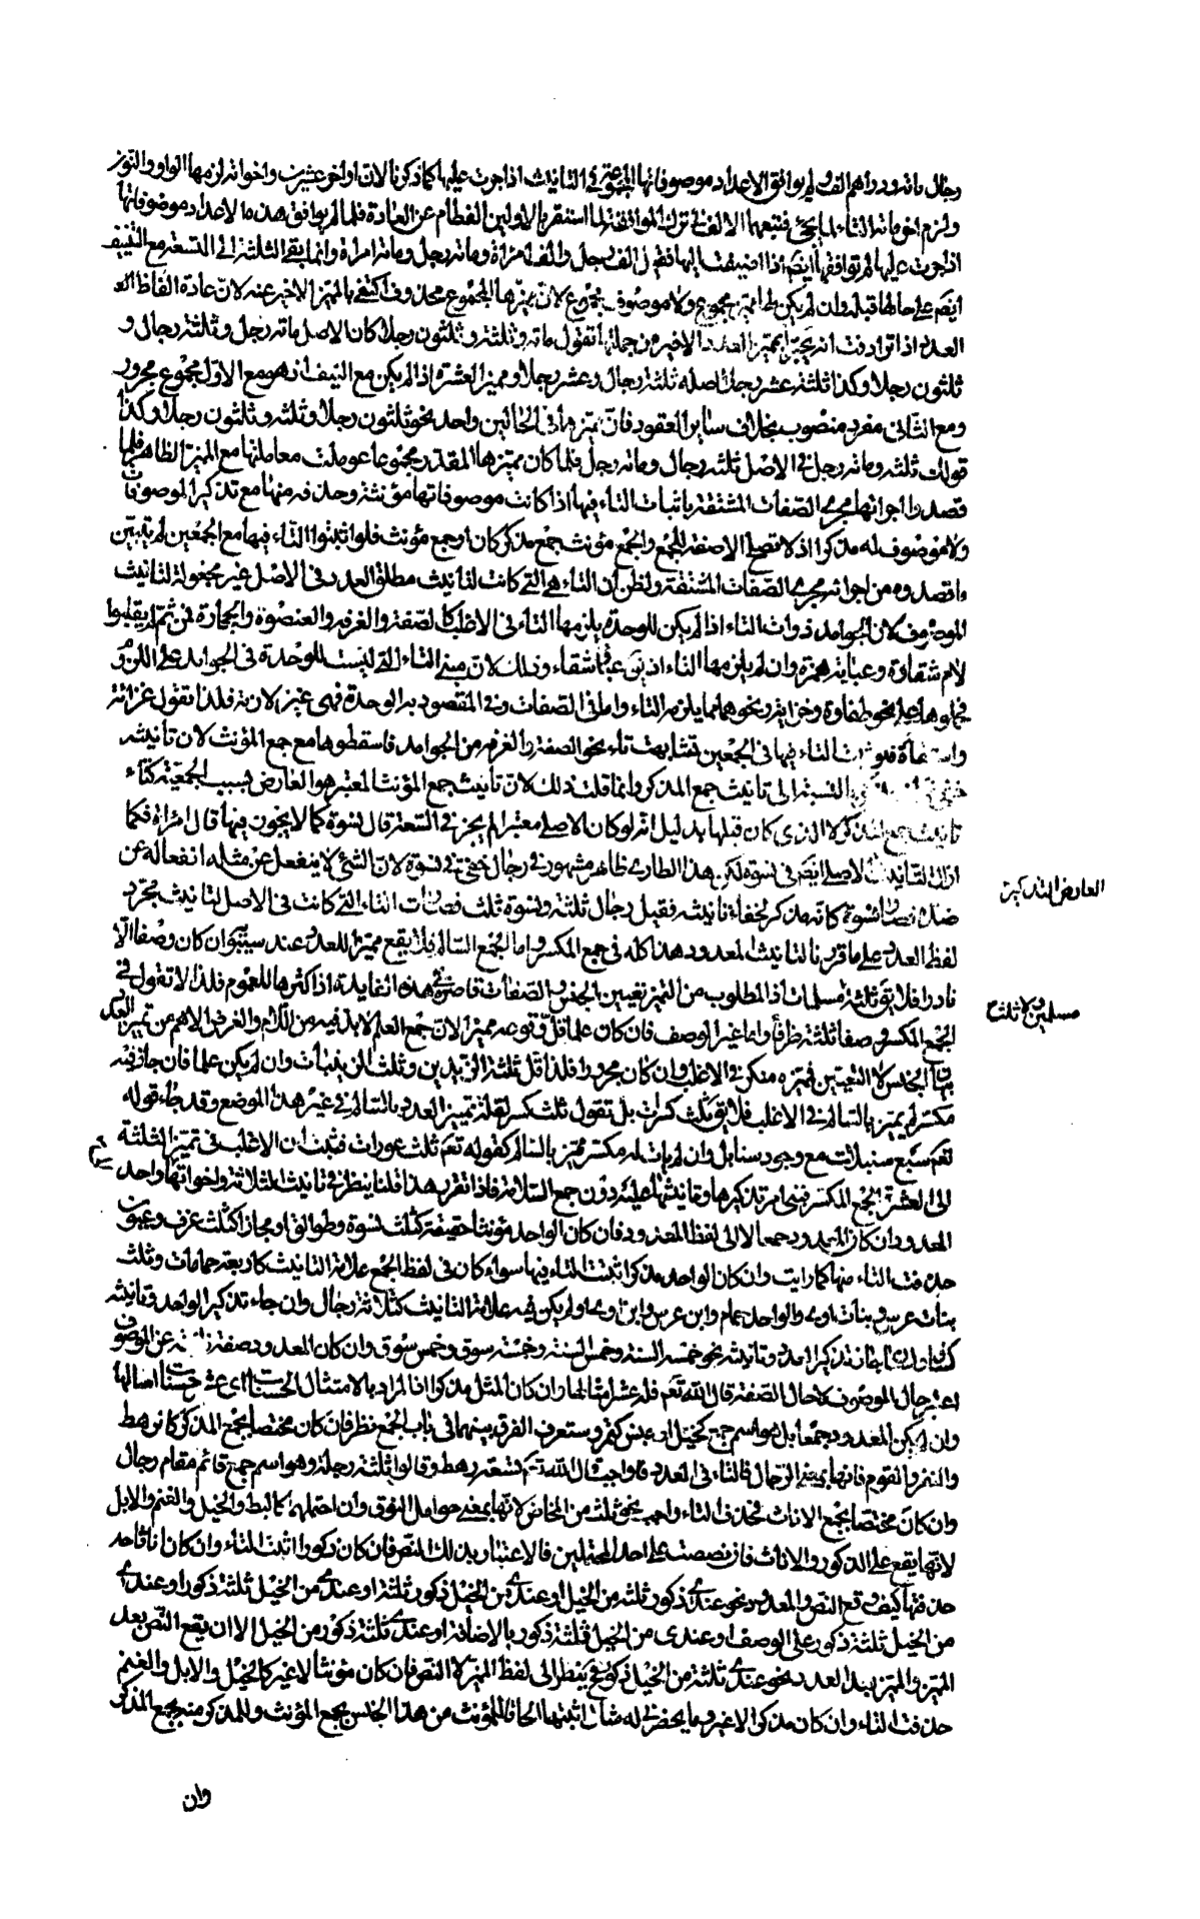 رجال مائة ودراهم الف ولم يوافق الاعداد موصوفاتها المجموعة في التانيث اذا جرت عليها كما ذكرنا لان اواخر عشرين واخواته لزمها الواو والنون
ولزم اخر مائة التاء لما يجئ فتبعها الالف في ترك الموافقة لما استقر بالاولين الفطام عن العادة فلما لم يوافق هذه الاعداد موصوفاتها
اذا جرت عليها لم توافقها ايضا اذا اضيفت اليها فقيل الف رجل والف امراة ومائة رجل ومائة امراة وانما بقى الثلثة الى التسعة مع التنييف
ايضا على حالها قبله وان لم يكن لها مميز مجموع ولا موصوف مجموع لان مميزها المجموع محذوف اكتفى بالمميز الاخير عنه لان عادة الفاظ
العدد اذا ترادفت ان يجتزأ بمميز العدد الاخير من جملتها تقول مائة وثلثة وثلثون رجلا كان الاصل مائة رجل وثلثة رجال و
ثلثون رجلا وكذا ثلثة عشر رجلا اصله ثلثة رجال وعشر رجلا ومميز العشرة اذا لم يكن مع النيف اذ هو مع الاول مجموع مجرور
ومع الثانى مفرد منصوب بخلاف ساير العقود فان مميزها فى الحالين واحد نحو ثلثون رجلا وثلثة وثلثون رجلا وكذا
قولك ثلثة ومائة رجل فى الاصل ثلثة رجال ومائة رجل فلما كان مميزها المقدر مجموعا عوملت معاملتها مع المميز الظاهر فلما
قصدوا اجرائها مجرى الصفات المشتقة باثبات التاء فيها اذا كانت موصوفاتها مؤنثة وحذفه منها مع تذكير الموصوفات
ولا موصوف له مذكرا اذ لا تصلح الا صفة للجمع والجمع مؤنث جمع مذكر كان او جمع مؤنث فلو اثبتوا التاء فيها مع الجمعين لم يتبين
ما قصدوه من اجرائه مجرى الصفات المشتقة ولظن ان التاء هى التى كانت لتانيث مطلق العدد فى الاصل غير مجعولة لتانيث
الموصوف لان الجوامد ذوات التاء اذا لم يكن للوحدة يلزمها التاء فى الاغلب كالصفة والغرفة والعنصوة والحجارة فمن ثم لم يقلبوا
لام شقاوة وعباية همزة وان لم يلزمها التاء اذ يق عباء وشقاء وذلك لان مبنى التاء التى ليست للوحدة فى الجوامد على اللزوم
فحملوها على نحو طفاوة وخزاية ونحوهما مما يلزمه التاء واما فى الصفات وفى المقصود به الوحدة فهى غير لازمة فلذا تقول غزائة
التاء فيها فى الجمعين لتشابهت تاء نحو الصفة والغرفة من الجوامد فاسقطوها مع جمع المؤنث لان تانيثه
بالنسبة الى تانيث جمع المذكر وانما قلت ذلك لان تانيث جمع المؤنث المعتبر هو العارض بسبب الجمعية كتاء
تانيث جمع المذكر لا الذى كان قبلها بدليل انه لو كان الاصلى معتبرا لم يجز فى السعة قال نسوة كما لا يجوز فيها قال امراة فكما
ازال التأنيث الاصلى ايضا فى نسوة لكن هذا الطارى ظاهر مشهور فى رجال خفى فى نسوة لان الشئ لا ينفعل عن مثله انفعاله عن
ضده فصار نسوة كانه مذكر لخفاء تانيثه فقيل رجال ثلثة ونسوة ثلث فصارت التاء التى كانت فى الاصل لتانيث مجرد
لفظ العدد على ما قررنا لتانيث المعدود هذا كله فى جمع المكسر واما الجمع السالم فلا يقع مميزا للعدد عند سيبويه ان كان وصفا الا
نادرا فلا يق ثلثة مسلمات اذ المطلوب من التمييز تعيين الجنس والصفات قاصرة فى هذه الفايدة اذ اكثرها للعموم فلذا لا تقول فى
الجمع المكسر وصفا ثلثة ظراف واما غير الوصف فان كان علما قل وقوعه مميزا لان جمع العلم لابد فيه من اللام والغرض الاهم من تمييز العدد
بيان الجنس لا التعيين فمميزه منكر فى الاغلب وان كان مجرورا فلذا قل ثلثة الزيدين وثلث الزينبات وان لم يكن علما فان جاز فيه
مكسر لم يميز بالسالم فى الاغلب فلا يق ثلث كسرات بل تقول ثلث كسر لقلة تمييز العدد بالسالم فى غير هذا الموضع وقد جاء قوله
تعم سبع سنبلات مع وجود سنابل وان لم يات له مكسر ميز بالسالم كقوله تعم ثلث عورات فثبت ان الاغلب فى تمييز الثلثة
الى العشرة الجمع المكسر فبنى امر تذكيرها وتانيثها عليه دون جمع السلامة فاذا تقرر هذا قلنا ينظر فى تانيث الثلاثة واخواتها واحد
المعدود ان كان المعدود جمعا لا الى لفظ المعدود فان كان الواحد مؤنثا حقيقة كثلث نسوة وطوالق او مجازا كثلث غرف وعيون
حذفت التاء منها كما رايت وان كان الواحد مذكرا اثبتت التاء فيها سواء كان فى لفظ الجمع علامة التانيث كاربعة حمامات وثلث
بنات عرس وبنات اوى والواحد حمام وابن عرس وابن اوى او لم يكن فيه علامة التانيث كثلاثة رجال وان جاء تذكير الواحد وتانيثه
كساق ولسان جاز تذكير العدد وتانيثه نحو خمسة السنة وخمس السنة وخمسة سوق وخمس سوق وان كان المعدود صفة نائبة عن الموصوف
اعتبر حال الموصوف لا حال الصفة قال الله تعم فله عشر امثالها وان كان المثل مذكرا اذ المراد بالامثال الحسنات اى عشر حسنات امثالها
وان لم يكن المعدود جمعا بل هو اسم جمع كخيل او جنس كتمر وستعرف الفرق بينهما فى باب الجمع نظر فان كان مختصا بجمع المذكر كالرهط
والنفر والقوم فانها بمعنى الرجال فالتاء فى العدد واجب قال الله تعم تسعة رهط وقالوا ثلثة رجلة وهو اسم جمع قائم مقام رجال
وان كان مختصا بجمع الاناث فحذف التاء واجب نحو ثلث من المخاض لانها بمعنى حوامل النوق وان احتملهما كالبط والخيل والغنم والابل
لانها يقع على الذكور والاناث فان نصصت على احد المحتملين فالاعتبار بذلك النص فان كان ذكورا اثبت التاء وان كان اناثا حد
حذفتها كيف وقع النص والمعدود نحو عندى ذكور ثلثة من الخيل او عندى من الخيل ذكور ثلثة او عندى من الخيل ثلثة ذكور او عندى
من الخيل ثلثة ذكور على الوصف او عندى من الخيل ثلثة ذكور بالاضافة او عندى ثلثة ذكور من الخيل الا ان يقع النص بعد
المميز والمميز بعد العدد نحو عندى ثلثة من الخيل ذكور فح ينظر الى لفظ المميز لا النص فان كان مؤنثا لا غير كالخيل والابل والغنم
حذفت التاء وان كان مذكرا لا غير وما يحضرنى له مثال اثبتها الحاقا للمؤنث من هذا الجنس بجمع المؤنث وللمذكر منه بجمع المذكر
العارض التذكير
مسلمين ولا ثلث
وان